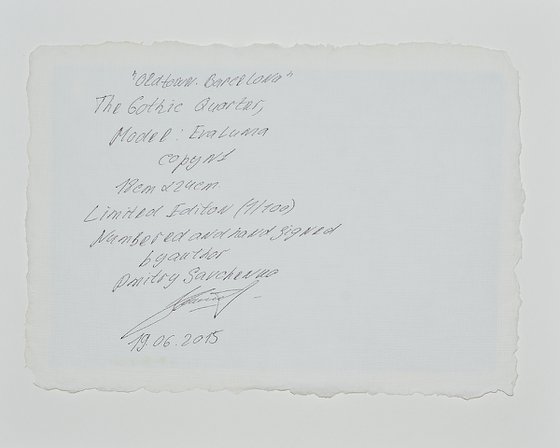 "Oldtown. Barcelona"
The Gothic Quarter,
Model: EvaLuna
copy N1
18cm x 24cm
Limited Editon (1/100)
Numbered and hand signed
by author
Dmitry Savchenko
19.06.2015